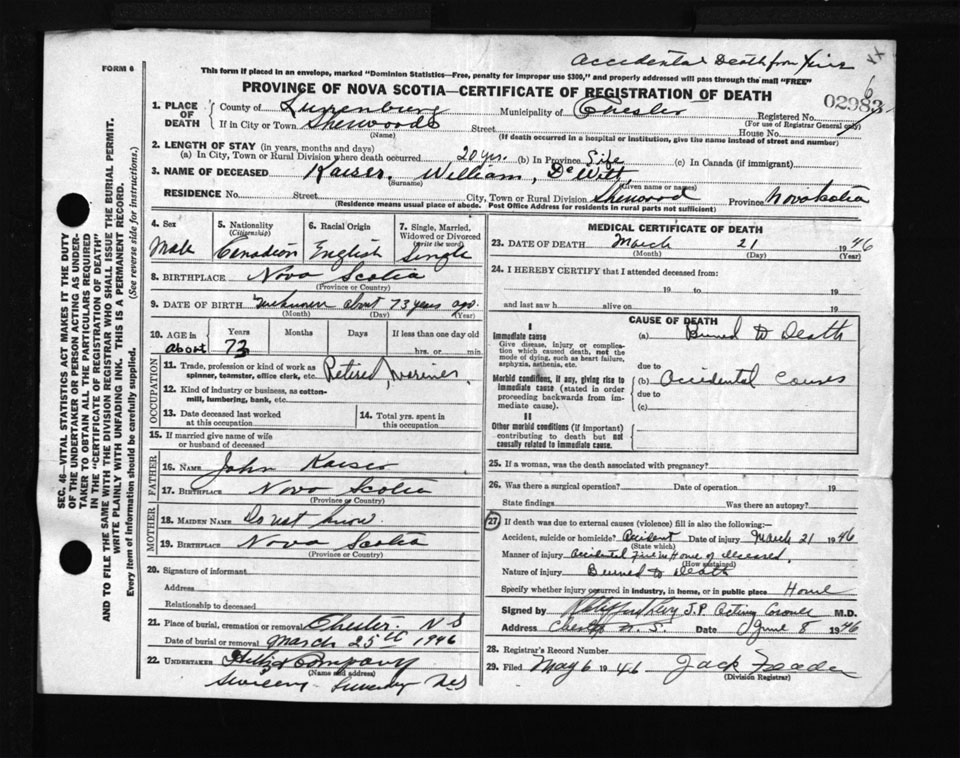 Accidental Death from Fire
FORM 6
This form if placed in an envelope, marked "Dominion Statistics—Free, penalty for improper use $300," and properly addressed will pass through the mail "FREE"
PROVINCE OF NOVA SCOTIA—CERTIFICATE OF REGISTRATION OF DEATH
6
02983
1. PLACE OF DEATH County of Lunenburg Municipality of Chester Registered No.
(For use of Registrar General only)
If in City or Town Sherwood Street House No.
(Name) (If death occurred in a hospital or institution, give the name instead of street and number)
2. LENGTH OF STAY (in years, months and days)
(a) In City, Town or Rural Division where death occurred 20 yrs. (b) In Province Life (c) In Canada (if immigrant)
3. NAME OF DECEASED Kaiser, William, DeWitt
(Surname) (Given name or names)
RESIDENCE No. Street City, Town or Rural Division Sherwood Province Nova Scotia
(Residence means usual place of abode. Post Office Address for residents in rural parts not sufficient)
4. Sex Male
5. Nationality (Citizenship) Canadian
6. Racial Origin English
7. Single, Married, Widowed or Divorced (write the word) Single
8. BIRTHPLACE Nova Scotia
(Province or Country)
9. DATE OF BIRTH Unknown about 73 years ago.
(Month) (Day) (Year)
10. AGE in Years Months Days If less than one day old
About 73 hrs. or min.
OCCUPATION
11. Trade, profession or kind of work as spinner, teamster, office clerk, etc. Retired, Mariner,
12. Kind of industry or business, as cotton-mill, lumbering, bank, etc.
13. Date deceased last worked at this occupation
14. Total yrs. spent in this occupation
15. If married give name of wife or husband of deceased
FATHER
16. NAME John Kaiser
17. BIRTHPLACE Nova Scotia
(Province or Country)
MOTHER
18. MAIDEN NAME Do not know.
19. BIRTHPLACE Nova Scotia
(Province or Country)
20. Signature of informant
Address
Relationship to deceased
21. Place of burial, cremation or removal Chester. N S
Date of burial or removal March 25th 1946
22. UNDERTAKER & Company
(Name and address)
N S
MEDICAL CERTIFICATE OF DEATH
23. DATE OF DEATH March 21 1946
(Month) (Day) (Year)
24. I HEREBY CERTIFY that I attended deceased from:
19 to 19
and last saw h alive on 19
CAUSE OF DEATH
I
Immediate cause
Give disease, injury or complication which caused death, not the mode of dying, such as heart failure, asphyxia, asthenia, etc.
(a) Burned to Death
due to
Morbid conditions, if any, giving rise to immediate cause (stated in order proceeding backwards from immediate cause).
(b) Accidental Causes
due to
(c)
II
Other morbid conditions (if important) contributing to death but not causally related to immediate cause.
25. If a woman, was the death associated with pregnancy?
26. Was there a surgical operation? Date of operation 19
State findings Was there an autopsy?
27. If death was due to external causes (violence) fill in also the following:—
Accident, suicide or homicide? Accident Date of injury March 21 1946
(State which)
Manner of injury Accidental fire in Home of deceased
(How sustained)
Nature of injury Burned to Death
Specify whether injury occurred in industry, in home, or in public place Home
Signed by J.P. Acting Coroner M.D.
Address Chester N.S. Date June 8 1946
28. Registrar's Record Number
29. Filed May 6 1946 Jack
(Division Registrar)
SEC. 46—VITAL STATISTICS ACT MAKES IT THE DUTY
OF THE UNDERTAKER OR PERSON ACTING AS UNDER-
TAKER TO OBTAIN ALL THE PARTICULARS REQUIRED
IN THE "CERTIFICATE OF REGISTRATION OF DEATH"
AND TO FILE THE SAME WITH THE DIVISION REGISTRAR WHO SHALL ISSUE THE BURIAL PERMIT.
WRITE PLAINLY WITH UNFADING INK. THIS IS A PERMANENT RECORD.
Every item of information should be carefully supplied. (See reverse side for instructions.)